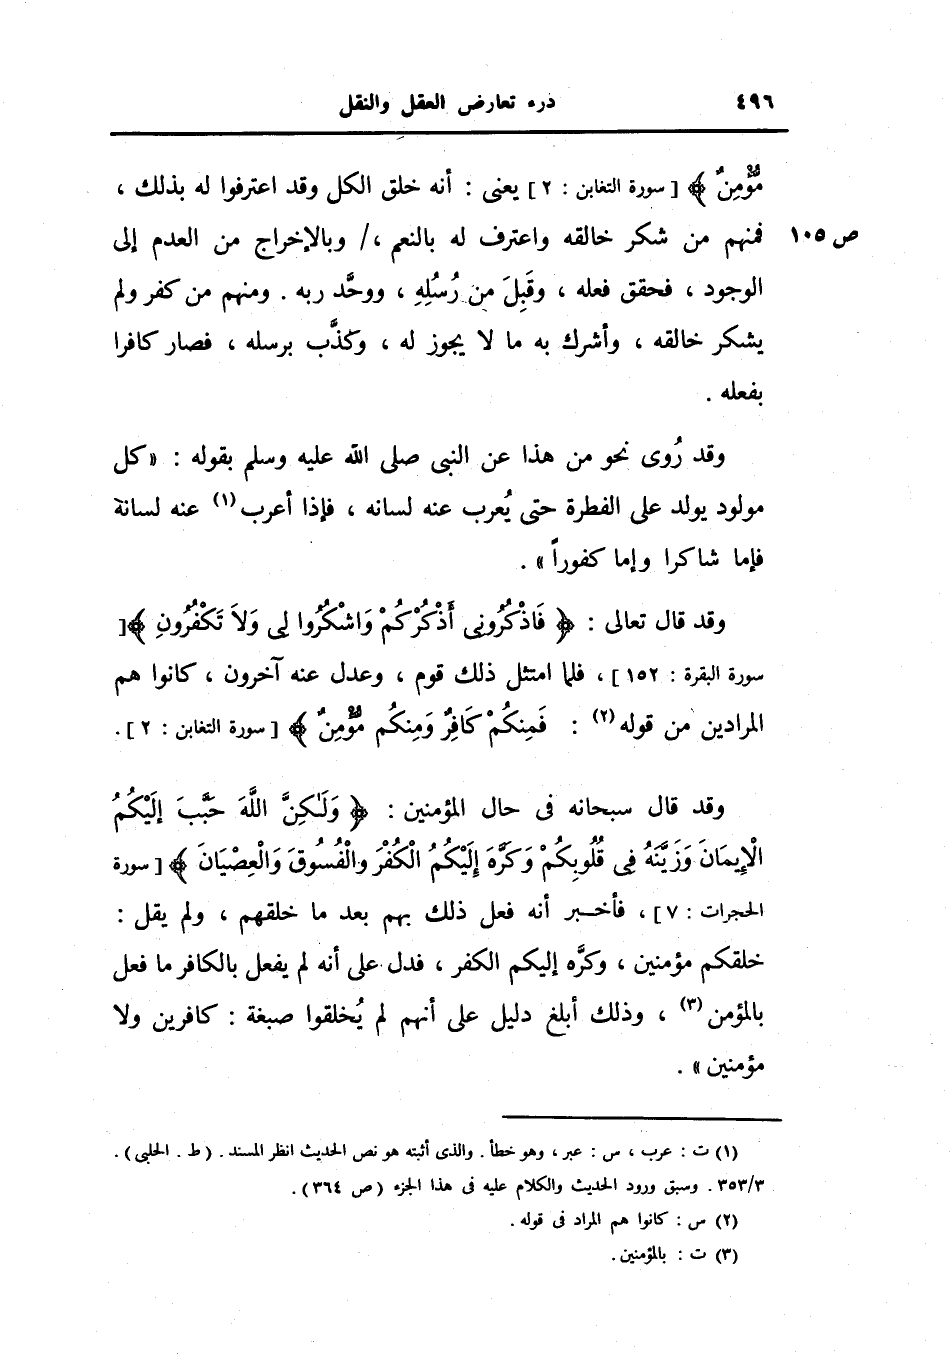 ٤٩٦ درء تعارض العقل والنقل
مُّؤْمِنٌ ﴾ [ سورة التغابن : ٢ ] يعنى : أنه خلق الكل وقد اعترفوا له بذلك ،
ص ١٠٥ فمنهم من شكر خالقه واعترف له بالنعم ،/ وبالإخراج من العدم إلى
الوجود ، فحقق فعله ، وقَبِلَ من رُسُلِهِ ، ووحَّد ربه . ومنهم من كفر ولم
يشكر خالقه ، وأشرك به ما لا يجوز له ، وكذَّب برسله ، فصار كافرا
بفعله .
وقد رُوى نحو من هذا عن النبى صلى الله عليه وسلم بقوله : «كل
مولود يولد على الفطرة حتى يُعرب عنه لسانه ، فإذا أعرب(١) عنه لسانة
فإما شاكرا وإما كفوراً » .
وقد قال تعالى : ﴿ فَاذْكُرُونِى أَذْكُرْكُمْ وَاشْكُرُوا لِى وَلاَ تَكْفُرُونِ ﴾[
سورة البقرة : ١٥٢ ] ، فلما امتثل ذلك قوم ، وعدل عنه آخرون ، كانوا هم
المرادين من قوله(٢) : فَمِنكُمْ كَافِرٌ وَمِنكُم مُّؤْمِنٌ ﴾ [ سورة التغابن : ٢ ] .
وقد قال سبحانه فى حال المؤمنين : ﴿ وَلَـٰكِنَّ اللَّهَ حَبَّبَ إِلَيْكُمُ
الْإِيمَانَ وَزَيَّنَهُ فِى قُلُوبِكُمْ وَكَرَّهَ إِلَيْكُمُ الْكُفْرَ والْفُسُوقَ وَالْعِصْيَانَ ﴾ [ سورة
الحجرات : ٧ ] ، فأخبر أنه فعل ذلك بهم بعد ما خلقهم ، ولم يقل :
خلقكم مؤمنين ، وكرَّه إليكم الكفر ، فدل على أنه لم يفعل بالكافر ما فعل
بالمؤمن(٣) ، وذلك أبلغ دليل على أنهم لم يُخلقوا صبغة : كافرين ولا
مؤمنين » .
(١) ت : عرب ، س : عبر ، وهو خطأ . والذى أثبته هو نص الحديث انظر المسند . ( ط . الحلبى ) .
٣٥٣/٣ . وسبق ورود الحديث والكلام عليه فى هذا الجزء ( ص ٣٦٤ ) .
(٢) س : كانوا هم المراد فى قوله .
(٣) ت : بالمؤمنين .